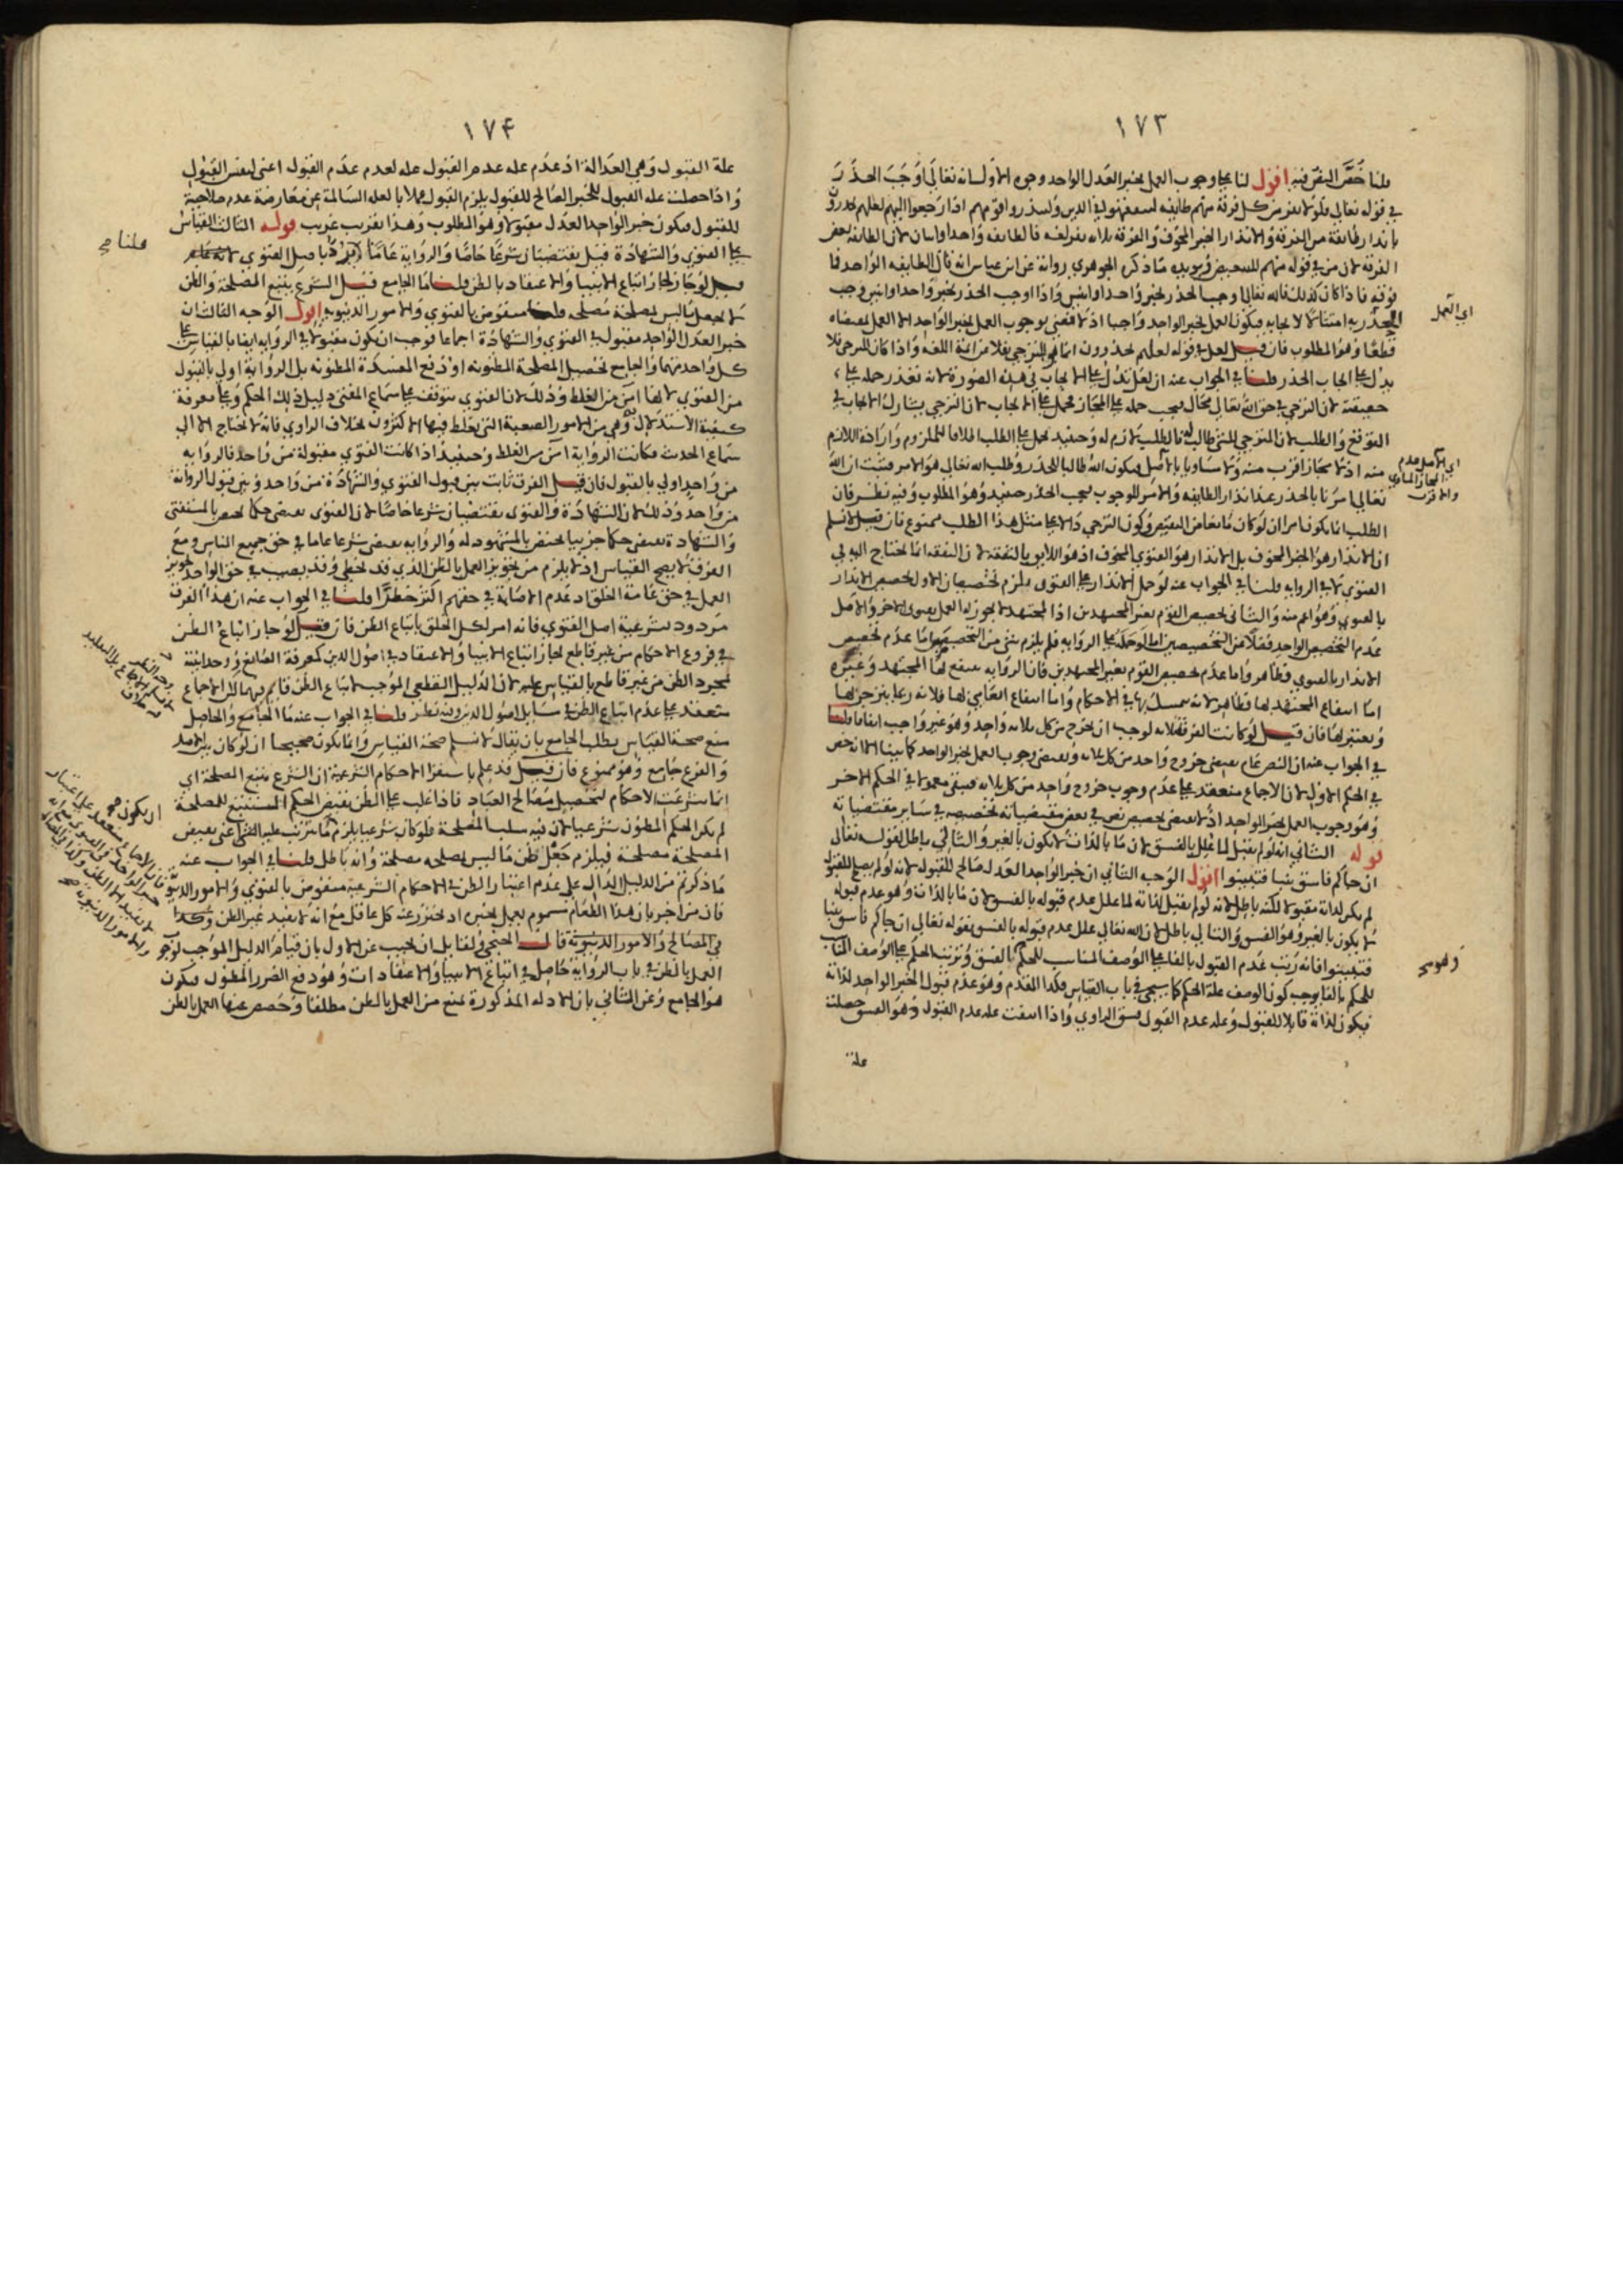 ١٧٣
قلنا خص النص فيه اقول لنا على وجوب العمل بخبر العدل الواحد وجوه الاول انه تعالى اوجب الحذر
في قوله تعالى فلولا نفر من كل فرقة منهم طايفة ليتفقهوا في الدين ولينذروا قومهم اذا رجعوا اليهم لعلهم يحذرون
بانذار طائفة من الفرقة والانذار الخبر المخوف والفرقة ثلاثة نفر لغة فالطايفة واحد او اثنان لان الطايفة بعض
الفرقة لان من في قوله منهم للتبعيض ويويده ما ذكره الجوهري رواية عن ابن عباس انه قال الطايفة الواحد فما
فوقه فاذا كان كذلك فانه تعالى اوجب الحذر بخبر واحد او اثنين واذا اوجب الحذر بخبر واحد او اثنين وجب
الحذر به امتثالا لايجابه فيكون العمل بخبر الواحد واجبا اذ لا معنى لوجوب العمل بخبر الواحد الا العمل بمقتضاه
قطعا وهو المطلوب فان قيل لعل في قوله لعلهم يحذرون انما هو للترجي نقلا من ائمة اللغة واذا كان للترجي فلا
يدل على ايجاب الحذر قلنا في الجواب عنه ان لعل تدل على الايجاب في هذه الصورة لانه تعذر حمله على
حقيقته لان الترجي في حق الله تعالى محال فيجب حمله على المجاز فحمل على الايجاب لان الترجي يشارك الايجاب في
التوقع والطلب لان المترجي للشيء طالب له فالطلب لازم له وحينئذ يحمل على الطلب اطلاقا للملزوم وارادة اللازم
منه اذ لا مجاز اقرب منه ولا مساويا بالاصل فيكون الله طالبا للحذر وطلب الله تعالى هو الامر فثبت ان الله
تعالى امرنا بالحذر عند انذار الطايفة والامر للوجوب فيجب الحذر حينئذ وهو المطلوب وفيه نظر فان
الطلب انما يكون امرا ان لو كان مانعا من النقيض وكون الترجي دالا على مثل هذا الطلب ممنوع فان قيل لا نسلم
ان الانذار هو الخبر المخوف بل الانذار هو الفتوى المخوف اذ هو اللايق بالتفقه لان التفقه انما يحتاج اليه في
الفتوى لا في الرواية قلنا في الجواب عنه لو حمل الانذار على الفتوى يلزم تخصيصان الاول تخصيص الانذار
بالفتوى وهو اعم منه والثاني تخصيص القوم بغير المجتهدين اذ المجتهد لا يجوز له العمل بفتوى الاخر والاصل
عدم التخصيص الواحد فضلا عن التخصيصين اما لو حمل على الرواية فلم يلزم شيء من التخصيصين اما عدم تخصيص
الانذار بالفتوى فظاهر واما عدم تخصيص القوم بغير المجتهدين فان الرواية ينتفع بها المجتهد وغيره
اما انتفاع المجتهد بها فظاهر لانه يتمسك بها في الاحكام واما انتفاع العامي بها فلانه ربما ينزجر بها
ويعتبر بها فان قيل لو كانت الفرقة ثلاثة لوجب ان يخرج من كل ثلاثة واحد وهو غير واجب اتفاقا قلنا
في الجواب عنه ان النص عام يقتضي خروج واحد من كل ثلاثة ويقتضي وجوب العمل بخبر الواحد كما بينا الا انه خص
في الحكم الاول لان الاجماع منعقد على عدم وجوب خروج واحد من كل ثلاثة فيبقى معمولا في الحكم الاخر
وهو وجوب العمل بخبر الواحد اذ لا يقتضي تخصيص نص في بعض مقتضياته تخصيصه في ساير مقتضياته
قوله الثاني انه لو لم يقبل لما علل بالفسق لان ما بالذات لا يكون بالغير والتالي باطل لقوله تعالى
ان جاكم فاسق بنبا فتبينوا اقول الوجه الثاني ان خبر الواحد العدل صالح للقبول لانه لو لم يصلح للقبول
لم يكن لذاته مقبولا لكنه باطل لانه لو لم يقبل لذاته لما علل عدم قبوله بالفسق لان ما بالذات وهو عدم قبوله
لا يكون بالغير وهو الفسق والتالي باطل لان الله تعالى علل عدم قبوله بالفسق بقوله تعالى ان جاكم فاسق بنبا
فتبينوا فانه رتب عدم القبول بالفا على الوصف المناسب للحكم بالفسق وترتيب الحكم على الوصف المناسب
للحكم بالفا يوجب كون الوصف علة الحكم كما سيجي في باب القياس فكذا المقدم وهو عدم قبول الخبر الواحد لذاته
فيكون لذاته قابلا للقبول وعلة عدم القبول فسق الراوي واذا انتفت علة عدم القبول وهو الفسق حصلت
علة
اي العمل
وهو صح
١٧۴
علة القبول وهي العدالة اذ عدم علة عدم القبول علة لعدم عدم القبول اعني لنفس القبول
واذا حصلت علة القبول للخبر الصالح للقبول يلزم القبول عملا بالعلة السالمة عن معارضة عدم صلاحية
للقبول فيكون خبر الواحد العدل مقبولا وهو المطلوب وهذا تقريب غريب قوله الثالث القياس
على الفتوى والشهادة قيل يقتضيان شرعا خاصا والرواية عاما ورد باصل الفتوى
قيل لو جاز لجاز اتباع الانبيا والاعتقاد بالظن قلنا ما الجامع قيل الشرع يتبع المصلحة والظن
لا يجعل ما ليس بمصلحة مصلحة قلنا منقوض بالفتوى والامور الدنيوية اقول الوجه الثالث ان
خبر العدل الواحد مقبول في الفتوى والشهادة اجماعا فوجب ان يكون مقبولا في الرواية ايضا بالقياس على
كل واحد منهما والجامع تحصيل المصلحة المظنونة او دفع المفسدة المظنونة بل الرواية اولى بالقبول
من الفتوى لانها ابعد من الغلط وذلك لان الفتوى يتوقف على سماع المفتي دليل ذلك الحكم وعلى معرفة
كيفية الاستدلال وهي من الامور الصعبة التي يغلط فيها الاكثرون بخلاف الراوي فانه لا يحتاج الا الى
سماع الحديث فكانت الرواية امن من الغلط وحينئذ اذا كانت الفتوى مقبولة من واحد فالرواية
من واحد اولى بالقبول فان قيل الفرق ثابت بين قبول الفتوى والشهادة من واحد وبين قبول الرواية
من واحد وذلك لان الشهادة والفتوى يقتضيان شرعا خاصا لان الفتوى يقتضي حكما يختص بالمستفتي
والشهادة يقتضي حكما جزييا يختص بالمشهود له والرواية يقتضي شرعا عاما في حق جميع الناس ومع
الفرق لا يصح القياس اذ لا يلزم من تجويز العمل بالظن الذي قد يخطي وقد يصيب في حق الواحد تجويز
العمل في حق عامة الخلق اذ عدم الاصابة في حقهم اكثر خطرا قلنا في الجواب عنه ان هذا الفرق
مردود بشرعية اصل الفتوى فانه امر لكل الخلق باتباع الظن فان قيل لو جاز اتباع الظن
في فروع الاحكام من غير قاطع لجاز اتباع الانبيا والاعتقاد في اصول الدين كمعرفة الصانع ووحدانيته
بمجرد الظن من غير قاطع بالقياس عليه لان الدليل القطعي الموجب لاتباع الظن قايم فيهما لكن الاجماع
منعقد على عدم اتباع الظن في مسايل اصول الدين وفيه نظر قلنا في الجواب عنه ما الجامع والحاصل
منع صحة القياس بطلب الجامع بان يقال لا نسلم صحة القياس وانما يكون صحيحا ان لو كان بين الاصل
والفرع جامع وهو ممنوع فان قيل قد علم باستقرا الاحكام الشرعية ان الشرع يتبع المصلحة اي
انما شرعت الاحكام لتحصيل مصالح العباد فاذا غلب على الظن نقيض الحكم المستتبع للمصلحة
لم يكن الحكم المظنون شرعيا لان فيه سلب المصلحة فلو كان شرعيا يلزم ما يترتب عليه الشي اعني نقيض
المصلحة مصلحة فيلزم جعل ظن ما ليس بمصلحة مصلحة وانه باطل قلنا في الجواب عنه
ما ذكرتم من الدليل الدال على عدم اعتبار الظن في الاحكام الشرعية منقوض بالفتوى والامور الدنيوية
فان من اخبر بان هذا الطعام مسموم يعمل بخبره اذ يحترز عنه كل عاقل مع انه لا يفيد غير الظن وكذا
في المصالح والامور الدنيوية قال الخنجي ولقايل ان يجيب عن الاول بان قيام الدليل الموجب لوجوب
العمل بالظن في باب الرواية حاصل في اتباع الانبيا والاعتقادات وهو دفع الضرر المظنون فيكون
هو الجامع وعن الثاني بان الادلة المذكورة تمنع من العمل بالظن مطلقا وخصص عنها العمل بالظن
قلنا صح